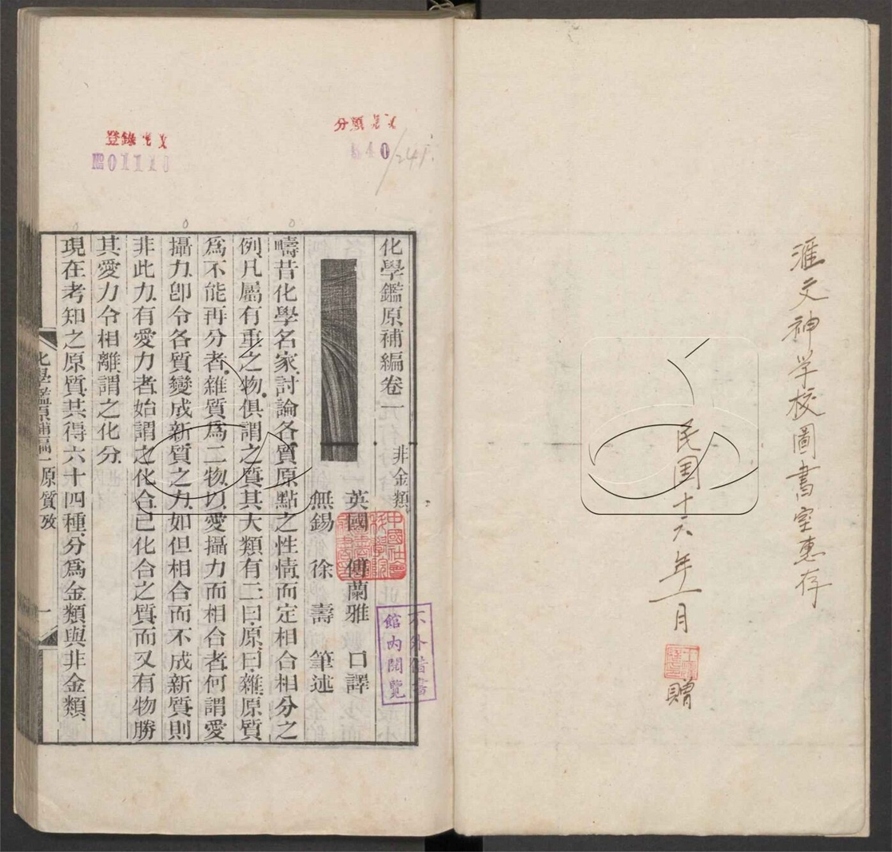 滙文神學校圖書室惠存
民国十六年一月
贈
分類
640
/241
登錄
化學鑑原補編卷一
非金類
英國 傅蘭雅 口譯
無錫 徐壽 筆述
中國社會
不外借書
館內閱覽
疇昔化學名家討論各質原點之性情而定相合相分之
例凡屬有重之物俱謂之質其大類有二曰原曰雜原質
爲不能再分者雜質爲二物以愛攝力而相合者何謂愛
攝力卽令各質變成新質之力如但相合而不成新質則
非此力有愛力者始謂之化合已化合之質而又有物勝
其愛力令相離謂之化分
現在考知之原質共得六十四種分爲金類與非金類
化學鑑原補編一 原質攷 一